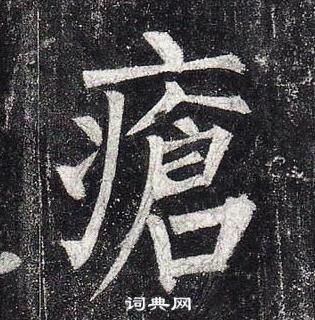 瘡
词典网